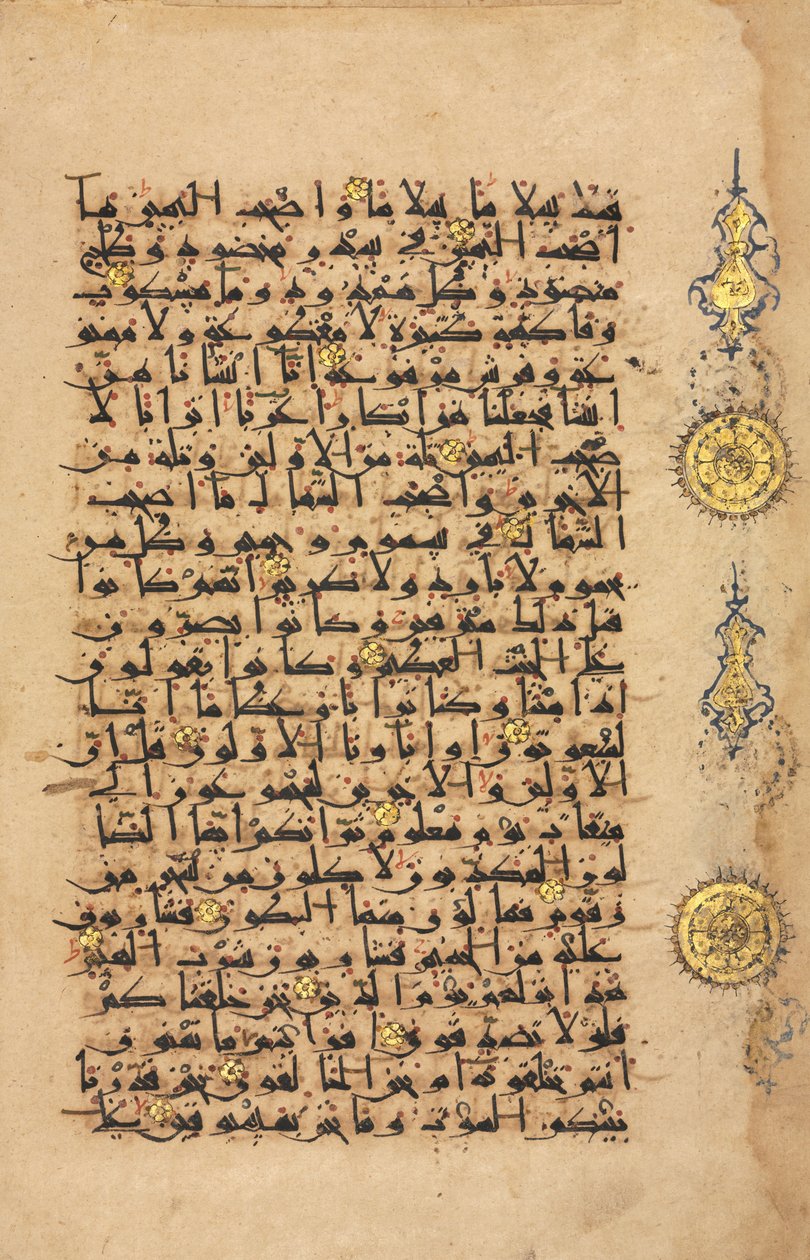 قيلا سلاما سلاما واصحب اليمين ما
اصحب اليمين في سدر مخضود وطلح
منضود وظل ممدود وما مسكوب
وفاكهة كثيرة لا مقطوعة ولا ممنو
عة وفرش مرفوعة انا انشانا هن
انشا فجعلنا هن ابكارا عربا اترابا لا
صحب اليمين ثلة من الاولين وثلة من
الاخرين واصحب الشمال ما اصحب
الشمال في سموم وحميم وظل من
يحموم لا بارد ولا كريم انهم كانوا
قبل ذلك مترفين وكانوا يصرون
على الحنث العظيم وكانوا يقولون
اذا متنا وكنا ترابا وعظاما انا
لمبعوثون او اباونا الاولون قل ان
الاولين والاخرين لمجموعون الى
ميقات يوم معلوم ثم انكم ايها الضا
لون المكذبون لاكلون من شجر من
زقوم فمالون منها البطون فشاربون
عليه من الحميم فشاربون شرب الهيم
هذا نزلهم يوم الدين نحن خلقناكم
فلولا تصدقون افرايتم ما تمنون
انتم تخلقونه ام نحن الخالقون نحن قدرنا
بينكم الموت وما نحن بمسبوقين على